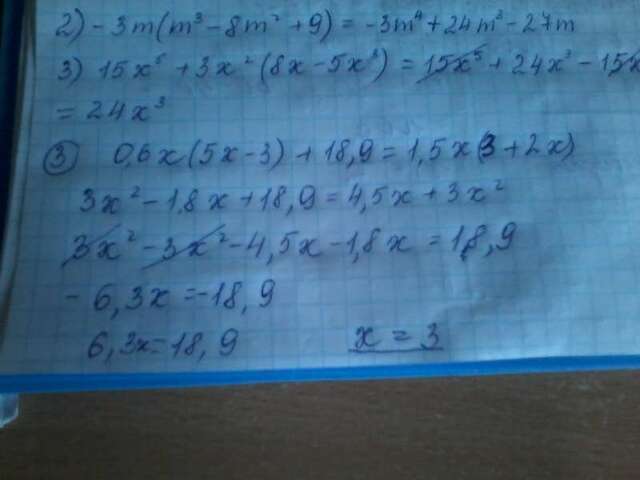 2) -3m(m³ - 8m² + 9) = -3m⁴ + 24m³ - 27m
3) 15x⁵ + 3x² (8x - 5x³) = 15x⁵ + 24x³ - 15x
= 24x³
③ 0,6x(5x - 3) + 18,9 = 1,5x(3 + 2x)
3x² - 1,8x + 18,9 = 4,5x + 3x²
3x² - 3x² - 4,5x - 1,8x = 18,9
- 6,3x = -18,9
6,3x = 18,9 x = 3